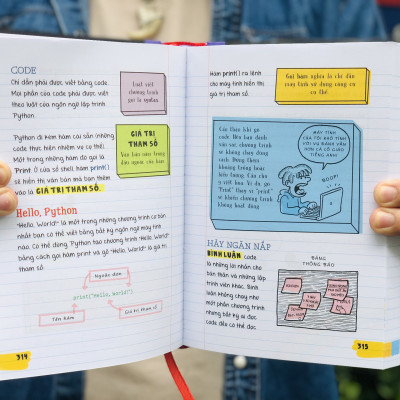 CODE
Chỉ dẫn phải được viết bằng code.
Mọi phần của code phải được viết
theo luật của ngôn ngữ lập trình
Python.
Lượt viết
chương trình
gọi là
Python đi kèm hàm cài sẵn (những
code thực hiện nhiệm vụ cụ thể).
Một trong những hàm đó gọi là
Print. Ở cửa sổ shell, hàm print( )
sẽ hiển thị văn bản mà bạn thêm
vào là GIÁ TRỊ THAM SỐ.
GIÁ TRỊ
THAM SỐ
Văn bản nằm trong
dấu ngoặc của hàm
Hello, Python
"Hello, World!" là một trong những chương trình cơ bản
nhất bạn có thể viết bằng bất kỳ ngôn ngữ máy tính
nào. Có thể dùng Python tạo chương trình "Hello, World!"
bằng cách gọi hàm print và để "Hello, World!" là giá trị
tham số.
Ngoặc đơn
print("Hello, World!")
Tên hàm
Giá trị tham số
314
Hàm print( ) ra lệnh
cho máy tính hiển thị
giá trị tham số.
Gọi hàm nghĩa là chỉ dẫn
máy tính sử dụng công cụ
cụ thể.
Cẩn thận khi gõ
code. Nếu bạn đánh
vần sai, chương trình
sẽ không chạy đúng
cách. Đừng thêm
khoảng trống hoặc
ký hiệu. Luôn để
ý viết hoa. Ví dụ, gõ
"Print" thay vì "print"
sẽ khiến chương trình
không hoạt động.
MÁY TÍNH
CỦA TÔI KHÓ TÍNH
VỚI VỤ ĐÁNH VẦN
HƠN CẢ CÔ GIÁO
TIẾNG ANH!
NOOP!
HÃY NGĂN NẮP
BÌNH LUẬN code
là những lời nhắn cho
bản thân và những lập
trình viên khác. Bình
luận không chạy như
một phần chương trình
nhưng bất kỳ ai đọc
code đều có thể đọc
BẢNG
THÔNG BÁO
315